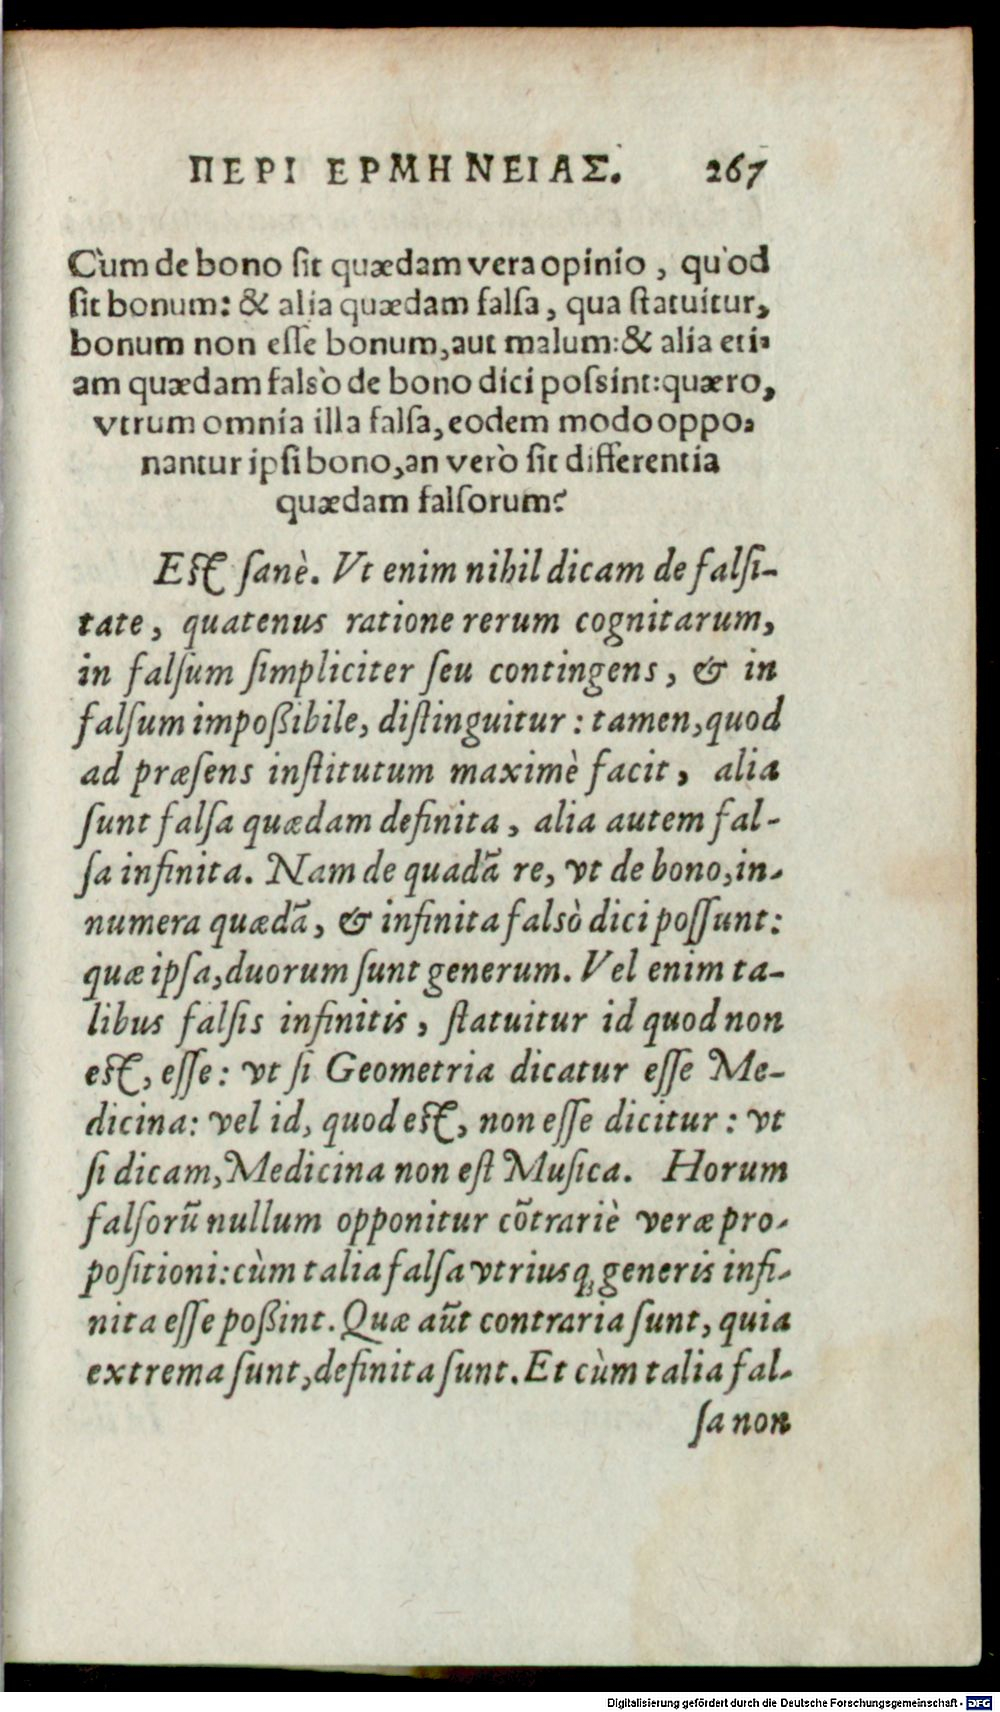 ΠΕΡΙ ΕΡΜΗΝΕΙΑΣ. 267
Cùm de bono ſit quædam vera opinio, quòd
ſit bonum: & alia quædam falſa, qua ſtatuitur,
bonum non eſſe bonum, aut malum: & alia eti-
am quædam falsò de bono dici poſsint: quæro,
vtrum omnia illa falſa, eodem modo oppo-
nantur ipſi bono, an verò ſit differentia
quædam falſorum?
Eſt ſanè. Vt enim nihil dicam de falſi-
tate, quatenus ratione rerum cognitarum,
in falſum ſimpliciter ſeu contingens, & in
falſum impoßibile, diſtinguitur: tamen, quod
ad præſens inſtitutum maximè facit, alia
ſunt falſa quædam definita, alia autem fal-
ſa infinita. Nam de quadã re, vt de bono, in-
numera quædã, & infinita falsò dici poſſunt:
quæ ipſa, duorum ſunt generum. Vel enim ta-
libus falſis infinitis, ſtatuitur id quod non
eſt, eſſe: vt ſi Geometria dicatur eſſe Me-
dicina: vel id, quod eſt, non eſſe dicitur: vt
ſi dicam, Medicina non eſt Muſica. Horum
falſorũ nullum opponitur cõtrariè veræ pro-
poſitioni: cùm talia falſa vtriusq; generis infi-
nita eſſe poßint. Quæ aũt contraria ſunt, quia
extrema ſunt, definita ſunt. Et cùm talia fal-
ſa non
Digitalisierung gefördert durch die Deutsche Forschungsgemeinschaft - DFG